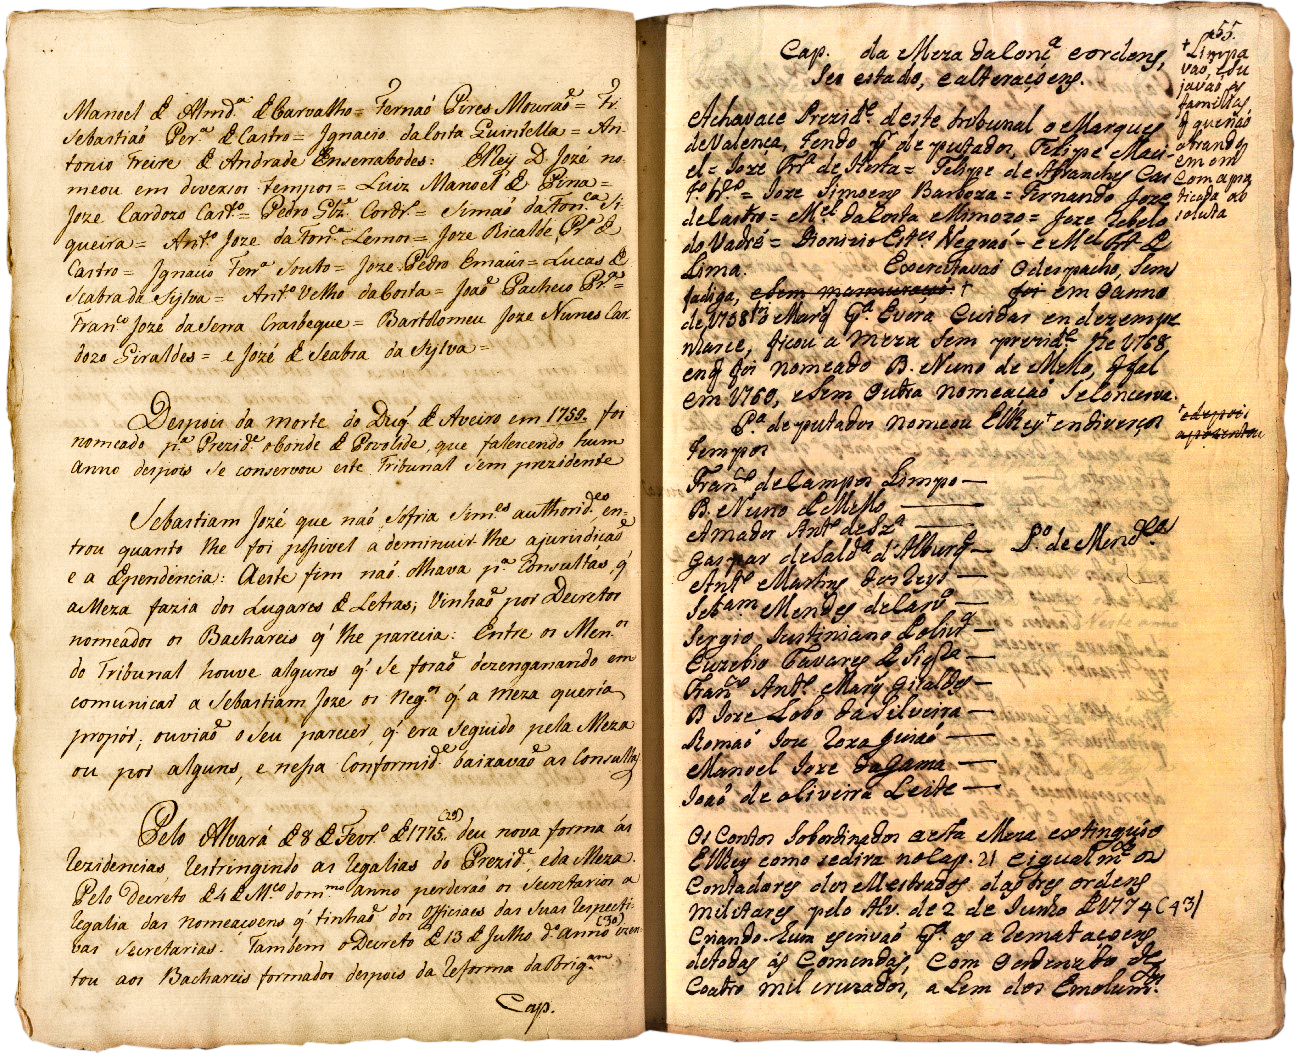 Manoel de Almd.ª de Carvalho = Fernaõ Pires Mouraõ = Fr.
Sebastiaõ Per.ª de Castro = Ignacio da Costa Quintella = An-
tonio Freire de Andrade Enserrabodes: ElRey D. Jozé no-
meou em diversos tempos = Luiz Manoel de Pina =
Joze Cardozo Cast.º = Pedro Glz. Cordr.º = Simaõ da Fon.ca Si
queira = Ant.º Joze da Fon.ca Lemos = Joze Ricalde Pr.ª de
Castro = Ignacio Ferr.ª Souto = Joze Pedro Emaus = Lucas de
Seabra da Sylva = Ant.º Velho da Costa = Joaõ Pacheco Pr.ª =
Fran.co Joze da Serra Crasbeque = Bartolomeu Joze Nunes Car
dozo Giraldes = e Jozé de Seabra da Sylva =
Depois da morte do Duq.e de Aveiro em 1759. foi
nomeado p.ª Prezid.e o Conde de Povolide, que falescendo hum
anno despois se conservou este Tribunal sem prezidente
Sebastiam Jozé que naõ sofria sim.es authorid.es, en-
trou quanto lhe foi possivel a deminuir lhe a jurisdicaõ
e a dependencia: A este fim naõ olhava p.ª Consultas, q'
a Meza fazia dos Lugares de Letras; Vinhaõ por Decretos
nomeados os Bachareis q' lhe parecia: Entre os Men.os
do Tribunal houve alguns q' se foraõ dezenganando em
comunicar a Sebastiam Joze os Neg.os q' a Meza queria
propór; ouviaõ o seu parecer, q' era seguido pela Meza
ou por alguns, e nessa Conformid.e baixavaõ as Consultas
Pelo Alvará de 8 de Fevr.º de 1775. (29) deu nova forma ás
rezidencias, restringindo as regalias do Prezid.e e da Meza.
Pelo Decreto de 4 de M.ço do m.mo anno perderaõ os Secretarios a
regalia das nomeacoens q' tinhaõ dos Officiaes das suas respecti-
vas Secretarias. Tambem o Decreto de 13 de Julho d.º anno (30) izen-
tou aos Bachareis formados despois da reforma da obrig.am
Cap.
55.
Cap. da Meza da Conc.ª e ordens,
Seu estado, e alteraçoens.
Achavace Prezid.e deste tribunal o Marques
de Valença, tendo p.r deputados, Felipe Maci-
el = Joze Fr.ª de Horta = Felipe de Abranches Cas
t.º b.co = Joze Simoens Barboza = Fernando Joze
de Castro = M.el da Costa Mimozo = Joze Rebelo
do Vadre = Dionizio Esteves Negraõ - e M.el
Lima. Exercitavaõ o despacho, sem
fadiga, e sem murmuracaõ. † foi em o anno
de 1758 o Marq p.ª Evora Cuidar en dezempe
nharce, ficou a meza sem prezid.e
enq foi nomeado B. Nuno de Mello, q fal
em 1760, e sem outra nomeacaõ se Conserva.
† Limpa
vaõ, e su
javaõ as
familias
q queriaõ
obrando
em om
Com a pra
ticada ab
soluta
P.ª deputados nomeou ElRey † en diversos
tempos
† e depois
apozentou
Fran.co de Campos Limpo —
B. Nuno de Mello —
Amador Ant.º de Sz.ª —
Gaspar de Sald.ª d'Alburq.e — L.º de Mendça
Ant.º Martins dos Reys —
Sebam Mendes de Carv.º —
Sergio Justiniano —
Euzebio Tavares de Siqr.ª —
Fran.co Ant.º Marq Giraldes —
B Joze Lobo da Silveira —
Romaõ Joze Roza Guiaõ —
Manoel Joze da Gama —
Joaõ de oliveira Leite —
Os Contos Soberdinados a esta Meza extinguio
ElRey como sedira no Cap. 21 e igual m.te os
Contadores dos Mestrados das tres ordens
militares pelo Alv. de 2 de Junho de 1774 (43)
Criando hum escrivaõ p.ª as a rematacoens
de todas as Comendas, Com Ordenado de
Coatro mil cruzados, a Lem dos Emolum.tos